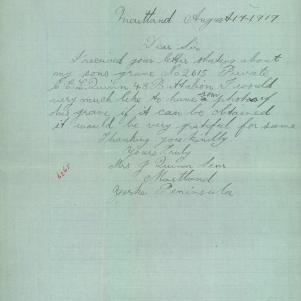 Maitland August 14-1917
Dear Sir
I received your letter stating about
my sons grave No 2615 Private
E.E.L. Quinn 48 Battalion I would
very much like to have some photos of
his grave if it can be obtained
it would be very grateful for same
Thanking you kindly
Yours Truly
Mrs J Quinn Senr
Maitland
Yorke Peninsula